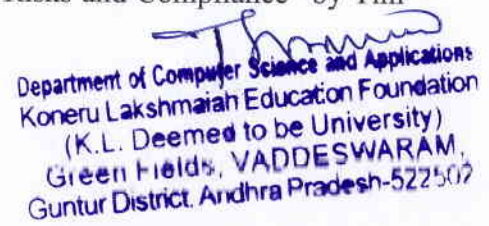 Risks and Compliance" by Tim
Department of Computer Science and Applications
Koneru Lakshmaiah Education Foundation
(K.L. Deemed to be University)
Green Fields, VADDESWARAM,
Guntur District. Andhra Pradesh-522502